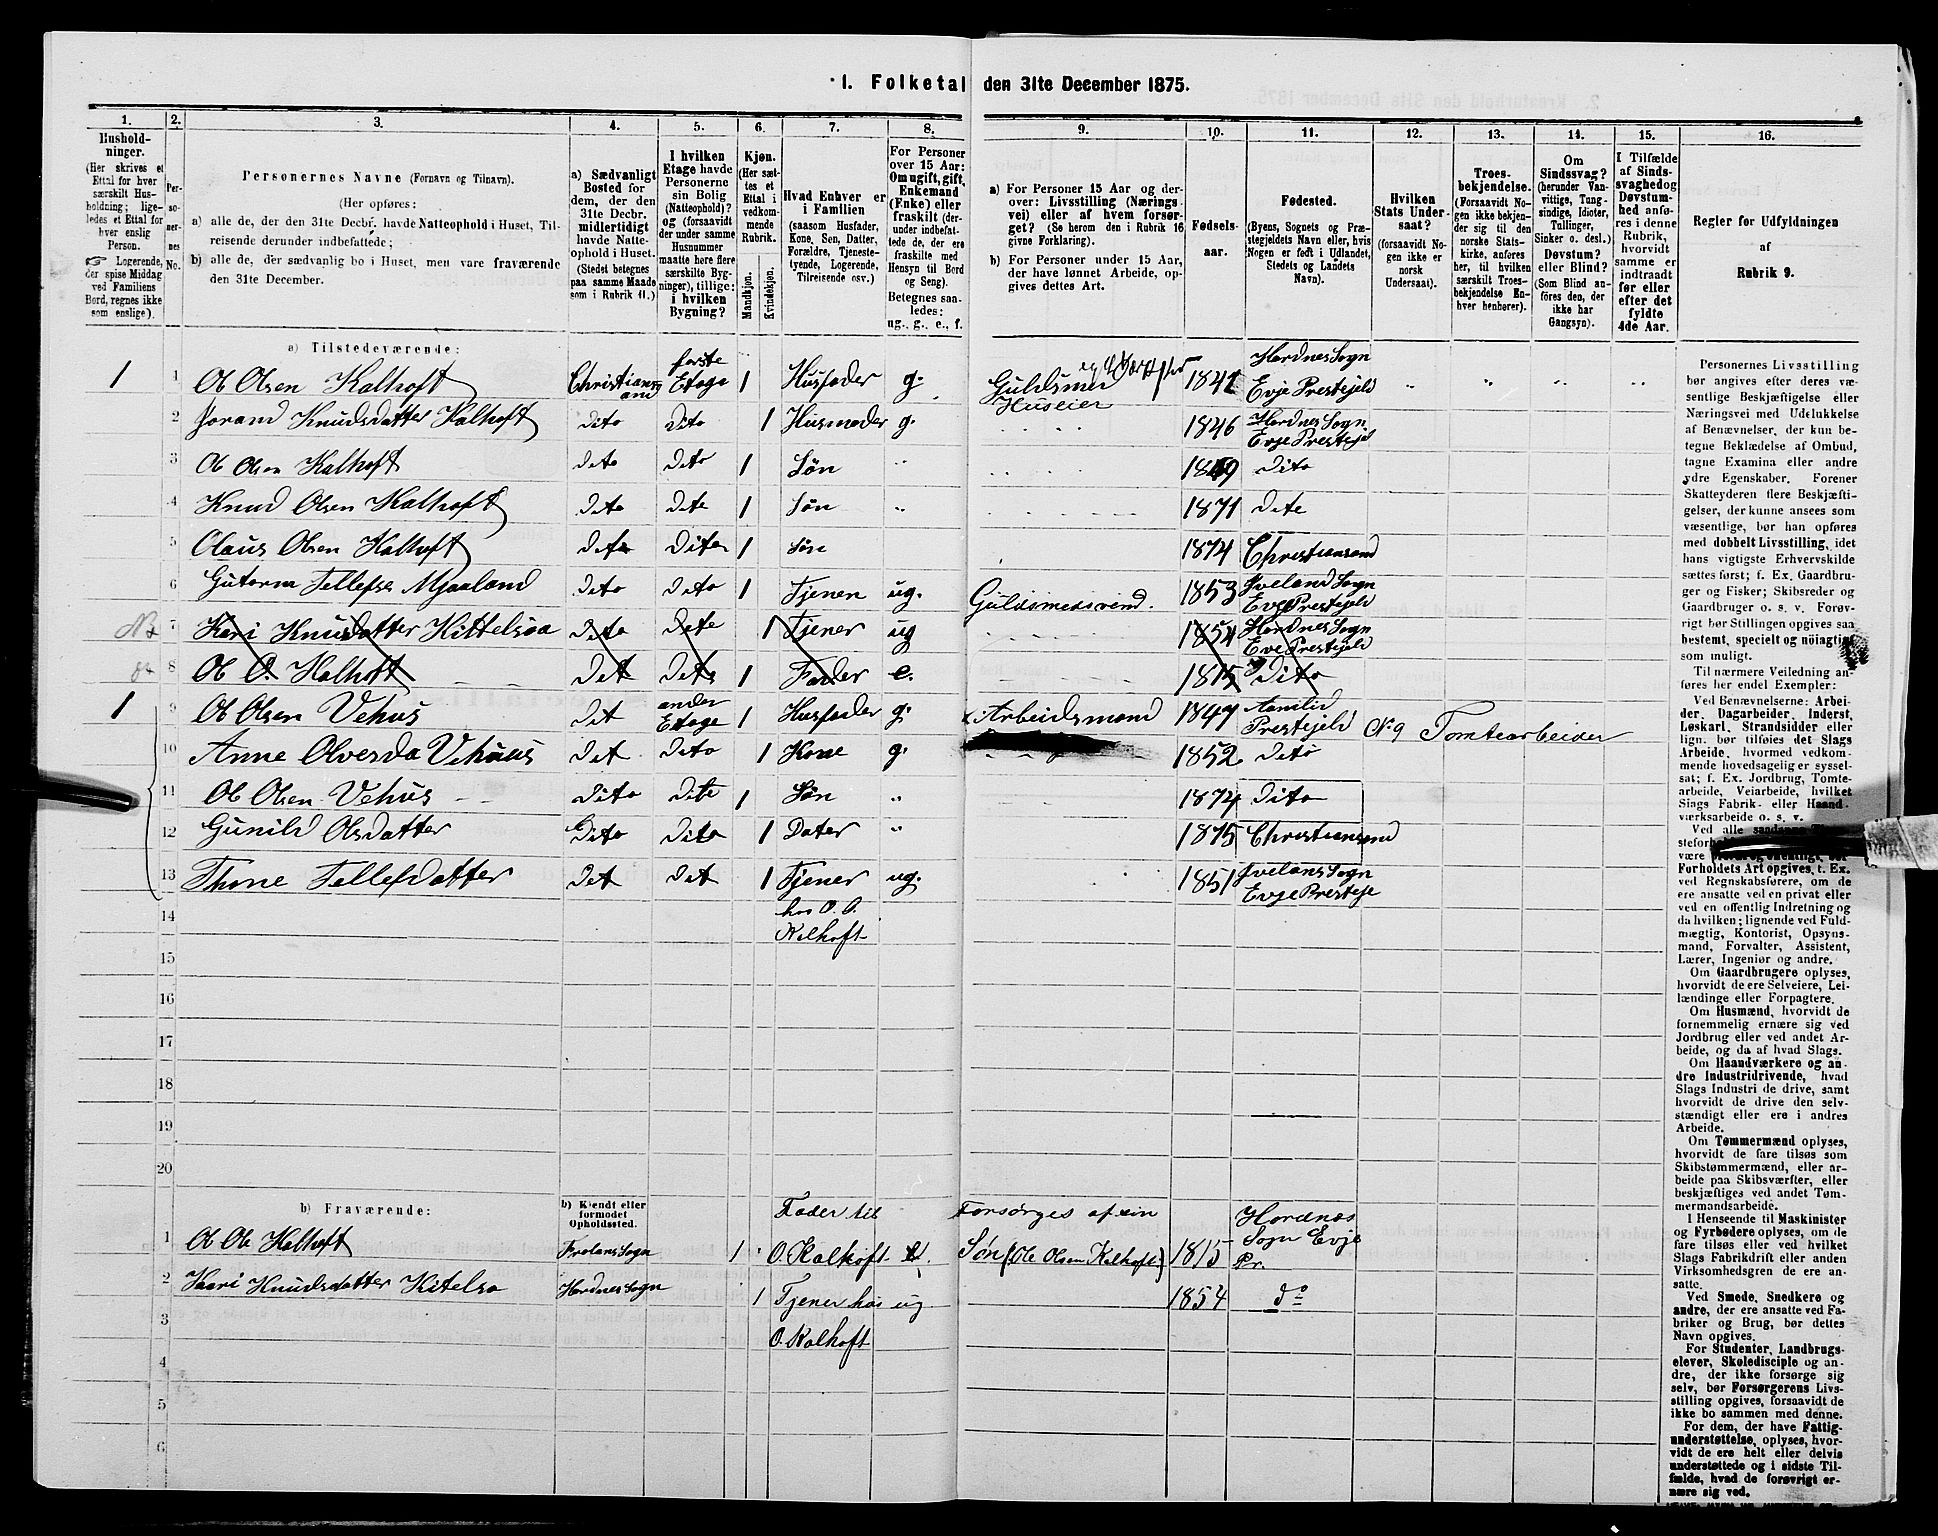 1. Folketal den 31te December 1875.
1. 2. 3. 4. 5. 6. 7. 8. 9. 10. 11. 12. 13. 14. 15. 16.
Hushold-
ninger.
(Her skrives et
Ettal for hver
særskilt Hus-
holdning; lige-
ledes et Ettal for
hver enslig
Person.
☞ Logerende,
der spise Middag
ved Familiens
Bord, regnes ikke
som enslige).
Per-
so-
ner-
nes
No.
Personernes Navne (Fornavn og Tilnavn).
(Her opføres:
a) alle de, der den 31te Decbr. havde Natteophold i Huset, Til-
reisende derunder indbefattede;
b) alle de, der sædvanlig bo i Huset, men vare fraværende
den 31te December.
a) Sædvanligt
Bosted for
dem, der den
31te Decbr.
midlertidigt
havde Natte-
ophold i Huset.
(Stedet betegnes
paa samme Maade
som i Rubrik 11.)
I hvilken
Etage havde
Personerne
sin Bolig
(Natteophold)?
og (forsaavidt
der under samme
Husnummer
maatte høre flere
særskilte Byg-
ninger), tillige:
i hvilken
Bygning?
Kjøn.
(Her sæt-
tes et
Ettal i
vedkom-
mende
Rubrik.
Mandkjøn.
Kvindekjøn.
Hvad Enhver er
i Familien
(saasom Husfader,
Kone, Søn, Datter,
Forældre, Tjeneste-
tyende, Logerende,
Tilreisende osv.)
For Personer
over 15 Aar:
Om ugift, gift,
Enkemand
(Enke) eller
fraskilt (der-
under indbefat-
tede de, der ere
fraskilte med
Hensyn til Bord
og Seng).
Betegnes saa-
ledes:
ug., g., e., f.
a) For Personer 15 Aar og der-
over: Livsstilling (Nærings-
vei) eller af hvem forsør-
get? (Se herom den i Rubrik 16
givne Forklaring).
b) For Personer under 15 Aar,
der have lønnet Arbeide, op-
gives dettes Art.
Fødsels-
aar.
Fødested.
(Byens, Sognets og Præ-
stegjeldets Navn eller, hvis
Nogen er født i Udlandet,
Stedets og Landets
Navn).
Hvilken
Stats Under-
saat?
(forsaavidt No-
gen ikke er
norsk
Undersaat).
Troes-
bekjendelse.
(Forsaavidt No-
gen ikke bekjen-
der sig til den
norske Stats-
kirke, anføres
her, til hvilken
særskilt Troes-
bekjendelse En-
hver henhører).
Om
Sindssvag?
(herunder Van-
vittige, Tung-
sindige, Idioter,
Tullinger,
Sinker o. desl.)
Døvstum?
eller Blind?
(Som Blind an-
føres den, der
ikke har
Gangsyn).
I Tilfælde
af Sinds-
svaghed og
Døvstum-
hed anfø-
res i denne
Rubrik,
hvorvidt
samme er
indtraadt
før eller
efter det
fyldte
4de Aar.
Regler for Udfyldningen
af
Rubrik 9.
a) Tilstedeværende:
1 1 Ob Olsen Kalhoft Christiansand første Etage 1 Husfader g. Guldsmed Huseier 1841 Hordnes Sogn Evje Prestejeld
2 Jorand Knudsdatter Kalhoft Dito Dito 1 Husmoder g. 1846 Hordnes Sogn Evje Prestejel
3 Ob Olsen Kalhoft Dito Dito 1 Søn 1869 Dito
4 Knud Olsen Kalhoft Dito Dito 1 Søn 1871 Dito
5 Olaus Olsen Kalhoft Dito Dito 1 Søn 1874 Christiansand
6 Gutorm Tellefse Mjaaland Dito Dito 1 Tjener ug. Guldsmedsvend. 1853 Iveland Sogn Evje Prestejeld
7 Kari Knudsdatter Kittelsaa Dito Dito 1 Tjener ug 1854 Hordnes Sogn Evje Prestejeld
8 Ob O. Kalhoft Det Dito 1 Fader e. 1815 Dito
1 9 Ob Olsen Vehus Det ander Etage 1 Husfader g. Arbeidsmand 1847 Aamlid Prestejeld No 9 Tomtearbeider
10 Anne Olvesda Vehuus Det Dito 1 Kone g. 1852 Dito
11 Ob Olsen Vehus Dito Dito 1 Søn 1874 Dito
12 Gunild Olsdatter Dito Dito 1 Dater 1875 Christiansand
13 Thone Tellefsdatter Det Det 1 Tjener hos O. O. Kalhoft ug. 1851 Ivelans Sogn Evje Presteje
14
15
16
17
18
19
20
b) Fraværende:
b) Kjendt eller
formodet
Opholdssted.
1 Ob Ols Kalhoft Frolans Sogn 1 Fader til O. Kalhoft e. Forsørges af sin Søn (Ole Olsen Kalhoft) 1815 Hordnæs Sogn Evje Pr.
2 Kari Knudsdatter Kitelsa Hordnes Sogn 1 Tjener hos O. Kalhoft ug 1854 do
3
4
5
6
Personernes Livsstilling
bør angives efter deres væ-
sentlige Beskjæftigelse eller
Næringsvei med Udelukkelse
af Benævnelser, der kun be-
tegne Beklædelse af Ombud,
tagne Examina eller andre
ydre Egenskaber. Forener
Skatteyderen flere Beskjæfti-
gelser, der kunne ansees som
væsentlige, bør han opføres
med dobbelt Livsstilling, idet
hans vigtigste Erhvervskilde
sættes først; f. Ex. Gaardbru-
ger og Fisker; Skibsreder og
Gaardbruger o. s. v. Forøv-
rigt bør Stillingen opgives saa
bestemt, specielt og nøiagtig
som muligt.
Til nærmere Veiledning an-
føres her endel Exempler:
Ved Benævnelserne: Arbei-
der, Dagarbeider, Inderst,
Løskarl, Strandsidder eller
lign. bør tilføies det Slags
Arbeide, hvormed vedkom-
mende hovedsagelig er syssel-
sat; f. Ex. Jordbrug, Tomte-
arbeide, Veiarbeide, hvilket
Slags Fabrik- eller Haand-
værksarbeide o. s. v.
Ved alle
være
Forholdets Art opgives, f. Ex.
ved Regnskabsførere, om de
ere ansatte ved en privat eller
ved en offentlig Indretning og
da hvilken; lignende ved Fuld-
mægtig, Kontorist, Opsyns-
mand, Forvalter, Assistent,
Lærer, Ingeniør og andre.
Om Gaardbrugere oplyses,
hvorvidt de ere Selveiere, Lei-
lændinge eller Forpagtere.
Om Husmænd, hvorvidt de
fornemmelig ernære sig ved
Jordbrug eller ved andet Ar-
beide, og da af hvad Slags.
Om Haandværkere og an-
dre Industridrivende, hvad
Slags Industri de drive, samt
hvorvidt de drive den selv-
stændigt eller ere i andres
Arbeide.
Om Tømmermænd oplyses,
hvorvidt de fare tilsøs som
Skibstømmermænd, eller ar-
beide paa Skibsværfter, eller
beskjæftiges ved andet Tøm-
mermandsarbeide.
I Henseende til Maskinister
og Fyrbødere oplyses, om de
fare tilsøs eller ved hvilket
Slags Fabrikdrift eller anden
Virksomhedsgren de ere an-
satte.
Ved Smede, Snedkere og
andre, der ere ansatte ved Fa-
briker og Brug, bør dettes
Navn opgives.
For Studenter, Landbrugs-
elever, Skoledisciple og an-
dre, der ikke forsørge sig
selv, bør Forsørgerens Livs-
stilling opgives, forsaavidt de
ikke bo sammen med denne.
For dem, der have Fattig-
understøttelse, oplyses, hvor-
vidt de ere helt eller delvis
understøttede og i sidste Til-
fælde, hvad de forøvrigt er-
nære sig ved.